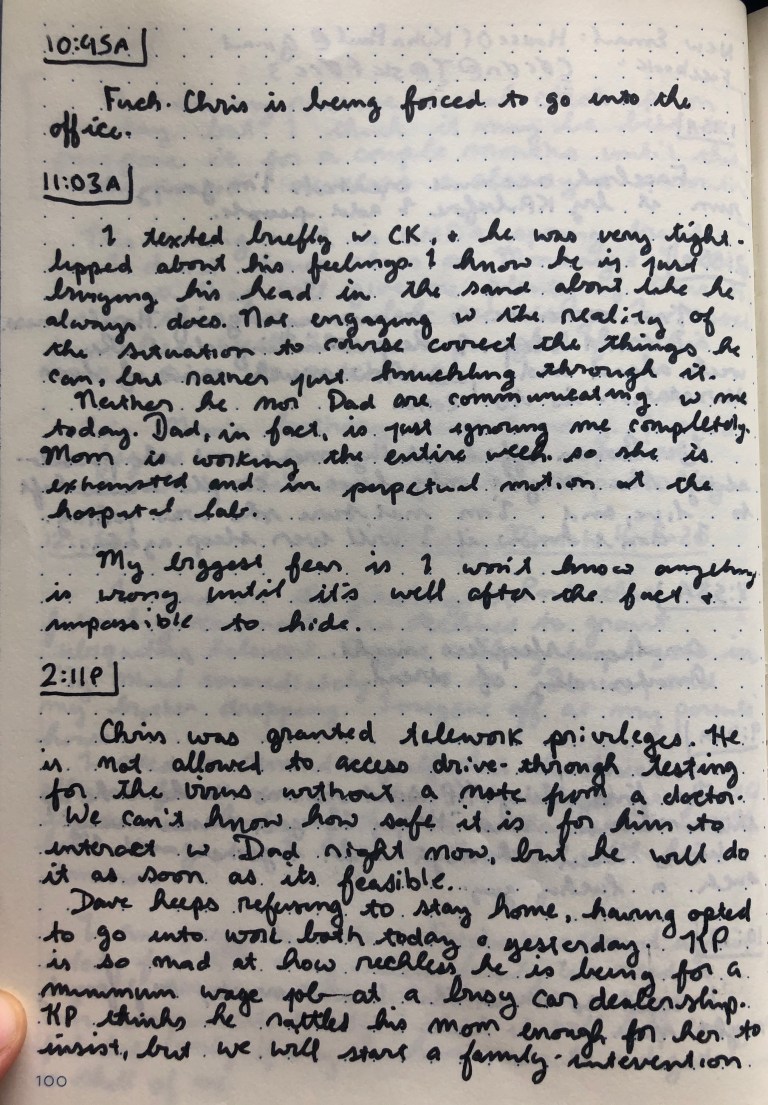 10:45A
Fuck. Chris is being forced to go into the
office.
11:03A
I texted briefly w CK, + he was very tight-
lipped about his feelings. I know he is just
burying his head in the sand about like he
always does. Not engaging w the reality of
the situation to course correct the things he
can, but rather just knuckling through it.
Neither he nor Dad are communicating w me
today. Dad, in fact, is just ignoring me completely.
Mom is working the entire week so she is
exhausted and in perpetual motion at the
hospital lab.
My biggest fear is I won't know anything
is wrong until it's well after the fact +
impossible to hide.
2:11P
Chris was granted telework privileges. He
is not allowed to access drive-through testing
for the virus without a note from a doctor.
We can't know how safe it is for him to
interact w Dad right now, but he will do
it as soon as its feasible.
Dave keeps refusing to stay home, having opted
to go into work both today & yesterday. KP
is so mad at how reckless he is being for a
minimum wage job at a busy car dealership.
KP thinks he rattled his mom enough for her to
insist, but we will start a family intervention
100